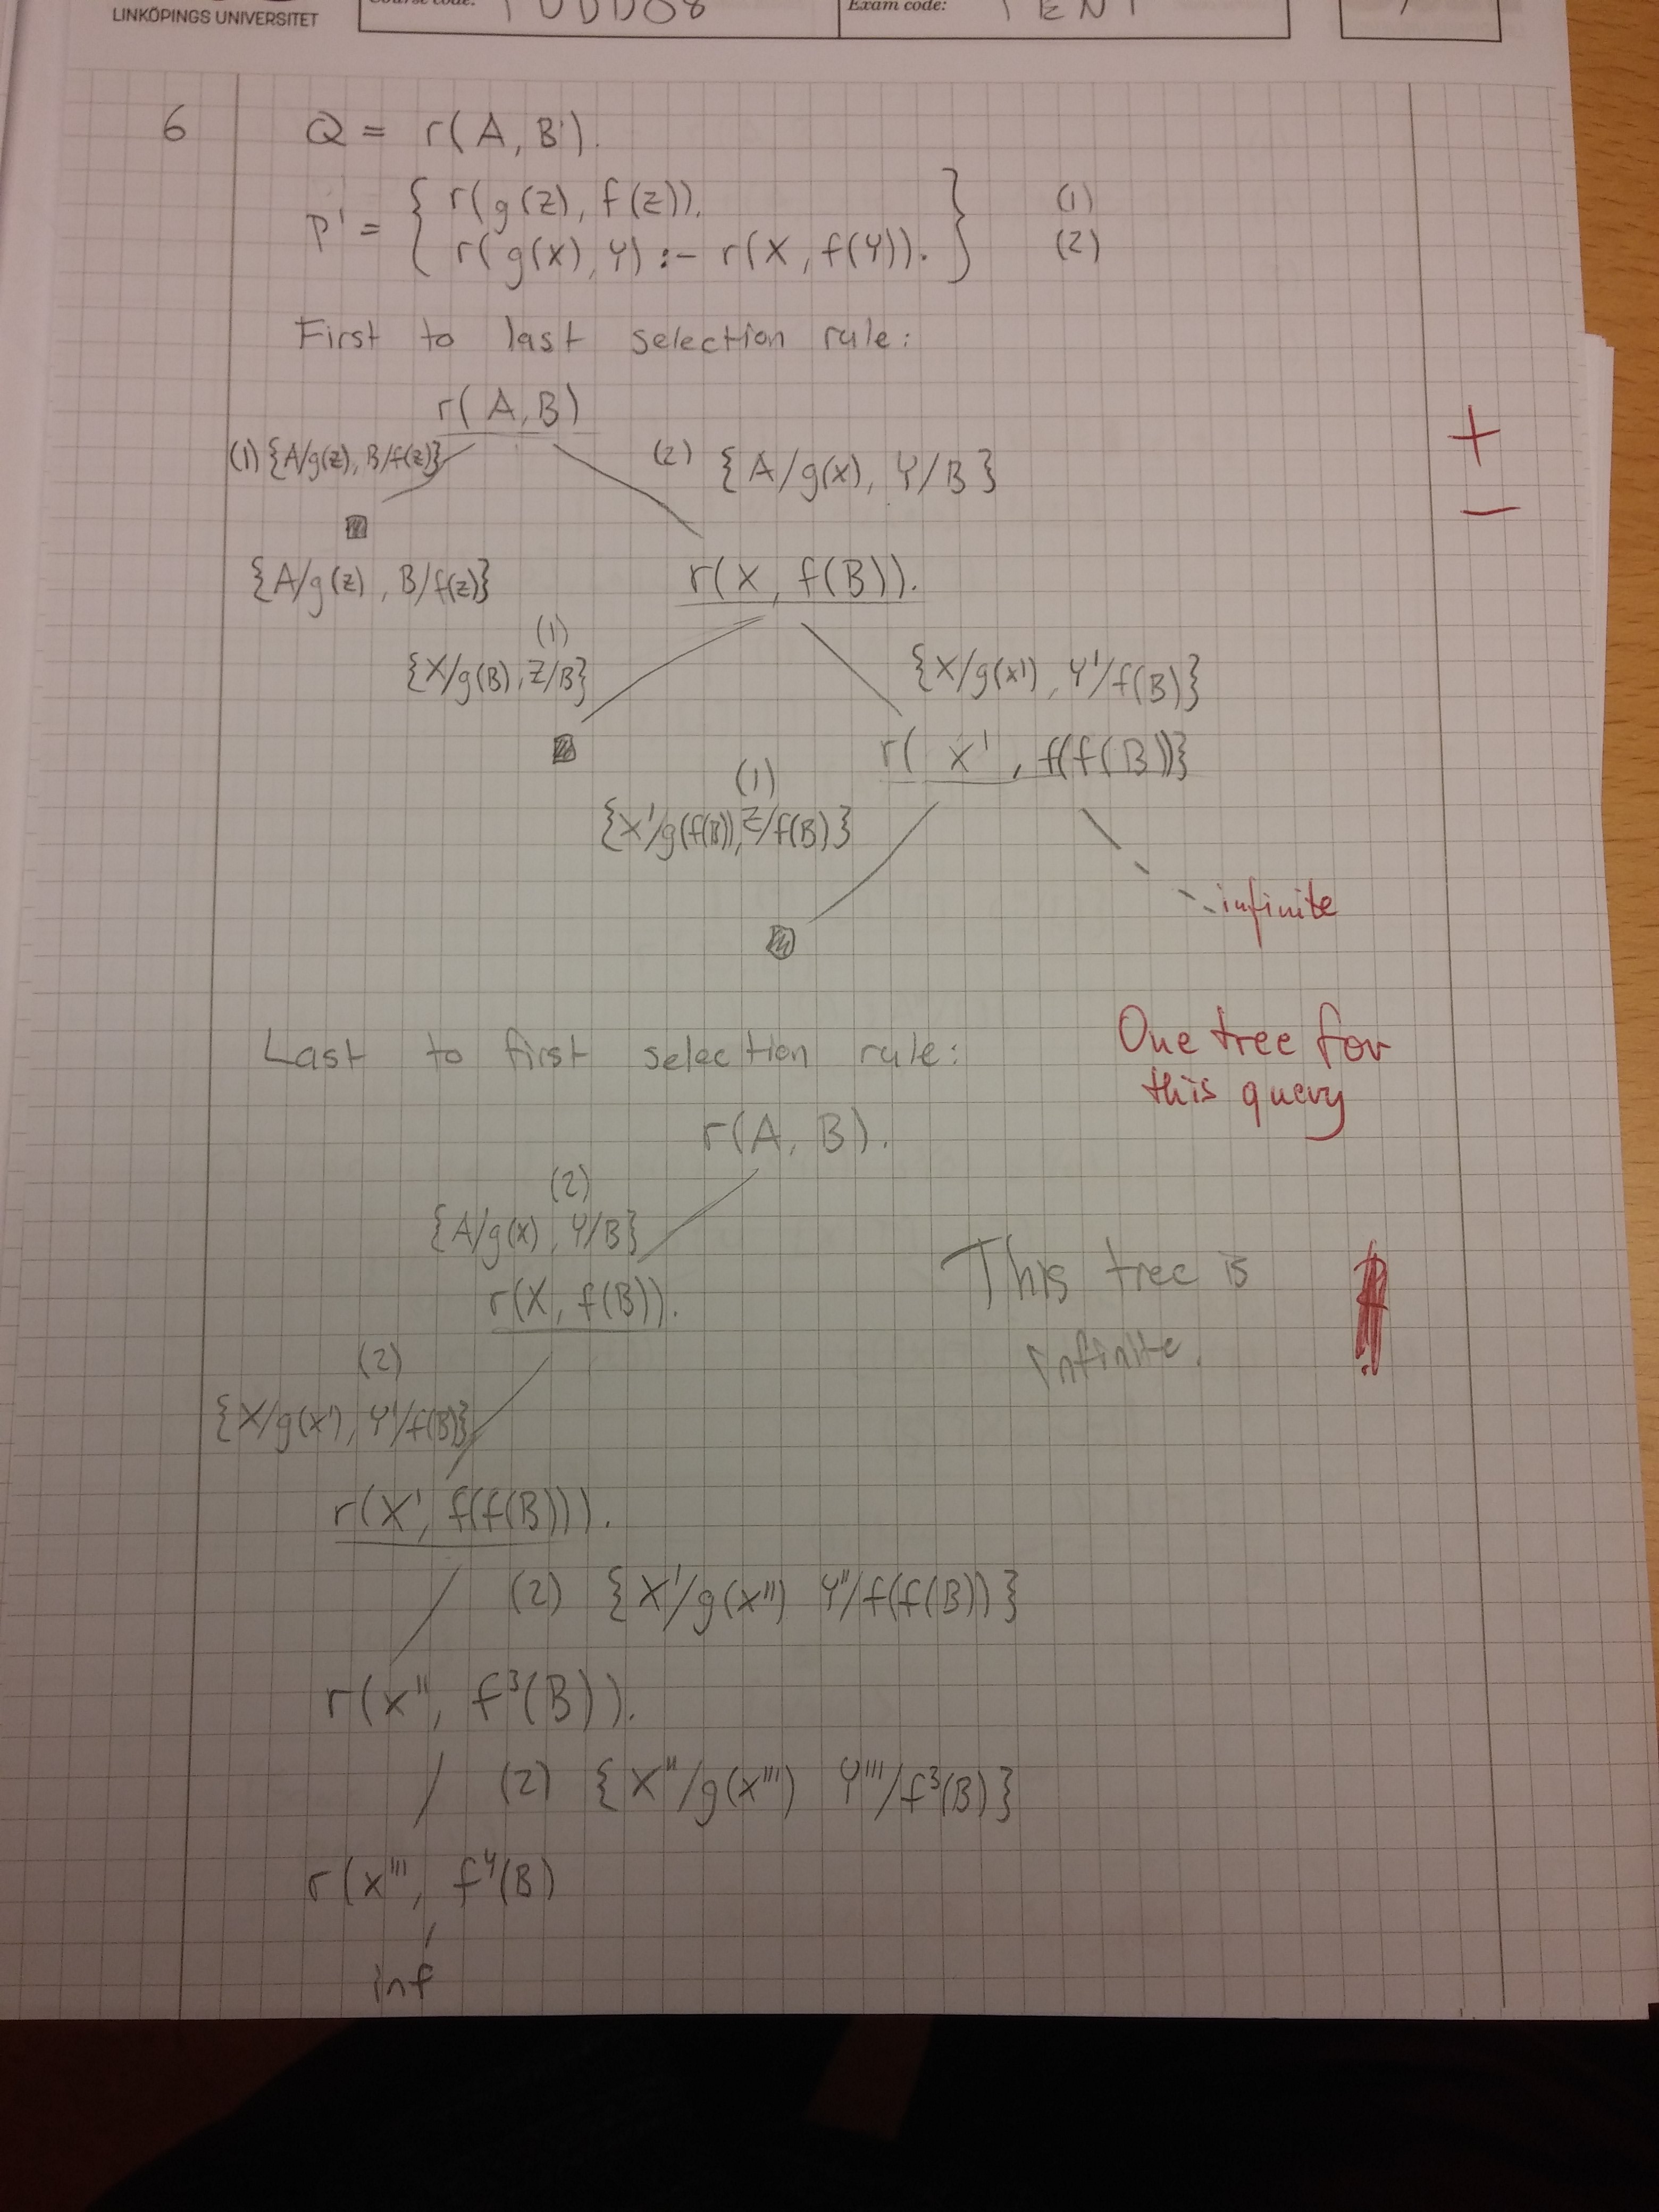 LINKÖPINGS UNIVERSITET
Course code:
Exam code:
TENT
6
Q = r(A, B).
P' = { r(g(z), f(z)). } (1)
r(g(X), Y) :- r(X, f(Y)). (2)
First to last selection rule:
r(A, B)
(1) {A/g(z), B/f(z)}
(2) {A/g(x), Y/B}
{A/g(z), B/f(z)}
r(X, f(B)).
(1)
{X/g(B), Z/B}
{X/g(x'), Y'/f(B)}
r(X', f(f(B))}
(1)
{X'/g(f(B)), Z/f(B)}
infinite
+
−
Last to first selection rule:
One tree for
this query
r(A, B).
(2)
{A/g(x), Y/B}
r(X, f(B)).
This tree is
infinite.
(2)
{X/g(x'), Y'/f(B)}
r(X', f(f(B))).
(2) {X'/g(x'') Y''/f(f(B))}
r(x'', f³(B)).
(2) {X''/g(x''') Y'''/f³(B)}
r(x''', f⁴(B)
inf